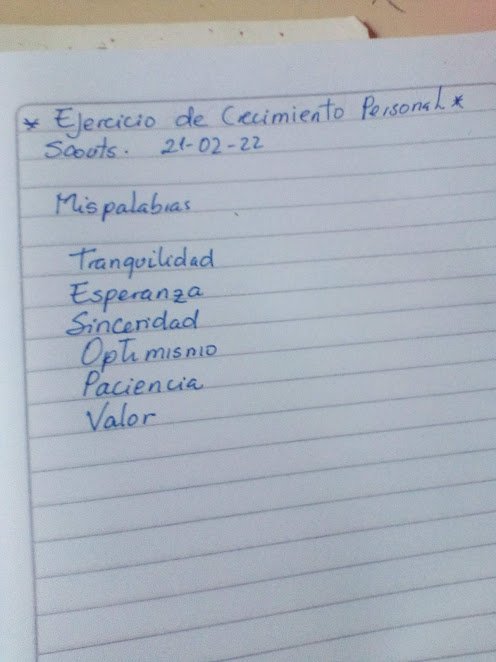 * Ejercicio de Crecimiento Personal *
Scouts. 21-02-22
Mis palabras
Tranquilidad
Esperanza
Sinceridad
Optimismo
Paciencia
Valor